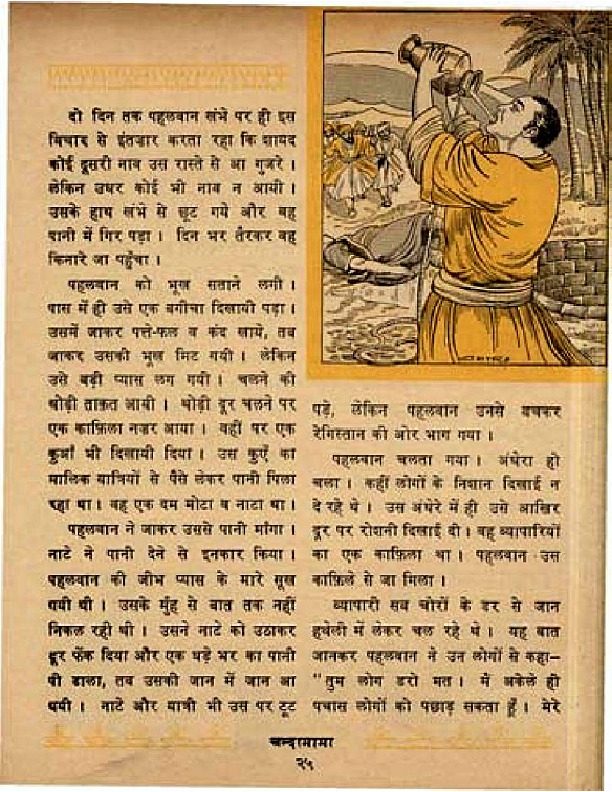 दो दिन तक पहलवान खंभे पर ही इस
विचार से इंतज़ार करता रहा कि शायद
कोई दूसरी नाव उस रास्ते से आ गुजरे ।
लेकिन उधर कोई भी नाव न आयी ।
उसके हाथ खंभे से छूट गये और वह
पानी में गिर पड़ा । दिन भर तैरकर वह
किनारे जा पहुँचा ।
पहलवान को भूख सताने लगी ।
पास में ही उसे एक बगीचा दिखायी पड़ा ।
उसमें जाकर पत्ते-फल व कंद खाये, तब
जाकर उसकी भूख मिट गयी । लेकिन
उसे बड़ी प्यास लग गयी । चलने की
थोड़ी ताक़त आयी । थोड़ी दूर चलने पर
एक काफ़िला नज़र आया । वहीं पर एक
कुआँ भी दिखायी दिया । उस कुएँ का
मालिक यात्रियों से पैसे लेकर पानी पिला
रहा था । वह एक दम मोटा व नाटा था ।
पहलवान ने जाकर उससे पानी माँगा ।
नाटे ने पानी देने से इनकार किया ।
पहलवान की जीभ प्यास के मारे सूख
गयी थी । उसके मुँह से बात तक नहीं
निकल रही थी । उसने नाटे को उठाकर
दूर फेंक दिया और एक घड़े भर का पानी
पी डाला, तब उसकी जान में जान आ
गयी । नाटे और यात्री भी उस पर टूट
पड़े, लेकिन पहलवान उनसे बचकर
रेगिस्तान की ओर भाग गया ।
पहलवान चलता गया । अंधेरा हो
चला । कहीं लोगों के निशान दिखाई न
दे रहे थे । उस अंधेरे में ही उसे आखिर
दूर पर रोशनी दिखाई दी । वह व्यापारियों
का एक काफ़िला था । पहलवान उस
काफ़िले से जा मिला ।
व्यापारी सब चोरों के डर से जान
हथेली में लेकर चल रहे थे । यह बात
जानकर पहलवान ने उन लोगों से कहा–
"तुम लोग डरो मत । मैं अकेले ही
पचास लोगों को पछाड़ सकता हूँ । मेरे
चन्दामामा
२५